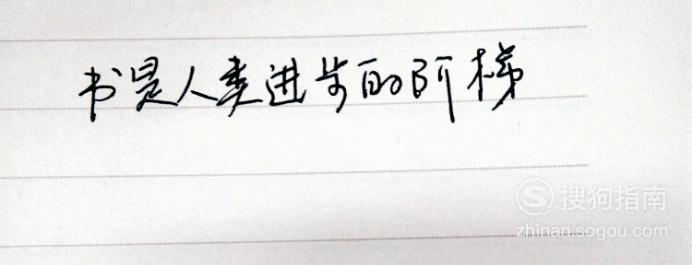 书是人类进步的阶梯
搜狗指南
zhinan.sogou.com